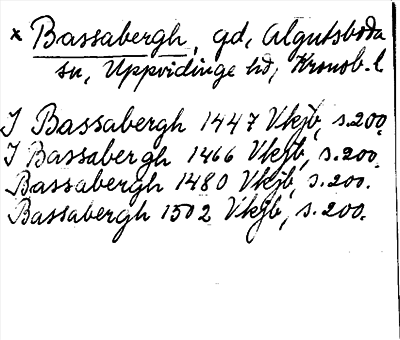 x Bassabergh, gd, Algutsboda
sn, Uppvidinge hd, Kronob. l.
I Bassabergh 1447 Vkjb, s. 200.
I Bassabergh 1466 Vkjb, s. 200.
Bassabergh 1480 Vkjb, s. 200.
Bassabergh 1502 Vkjb, s. 200.